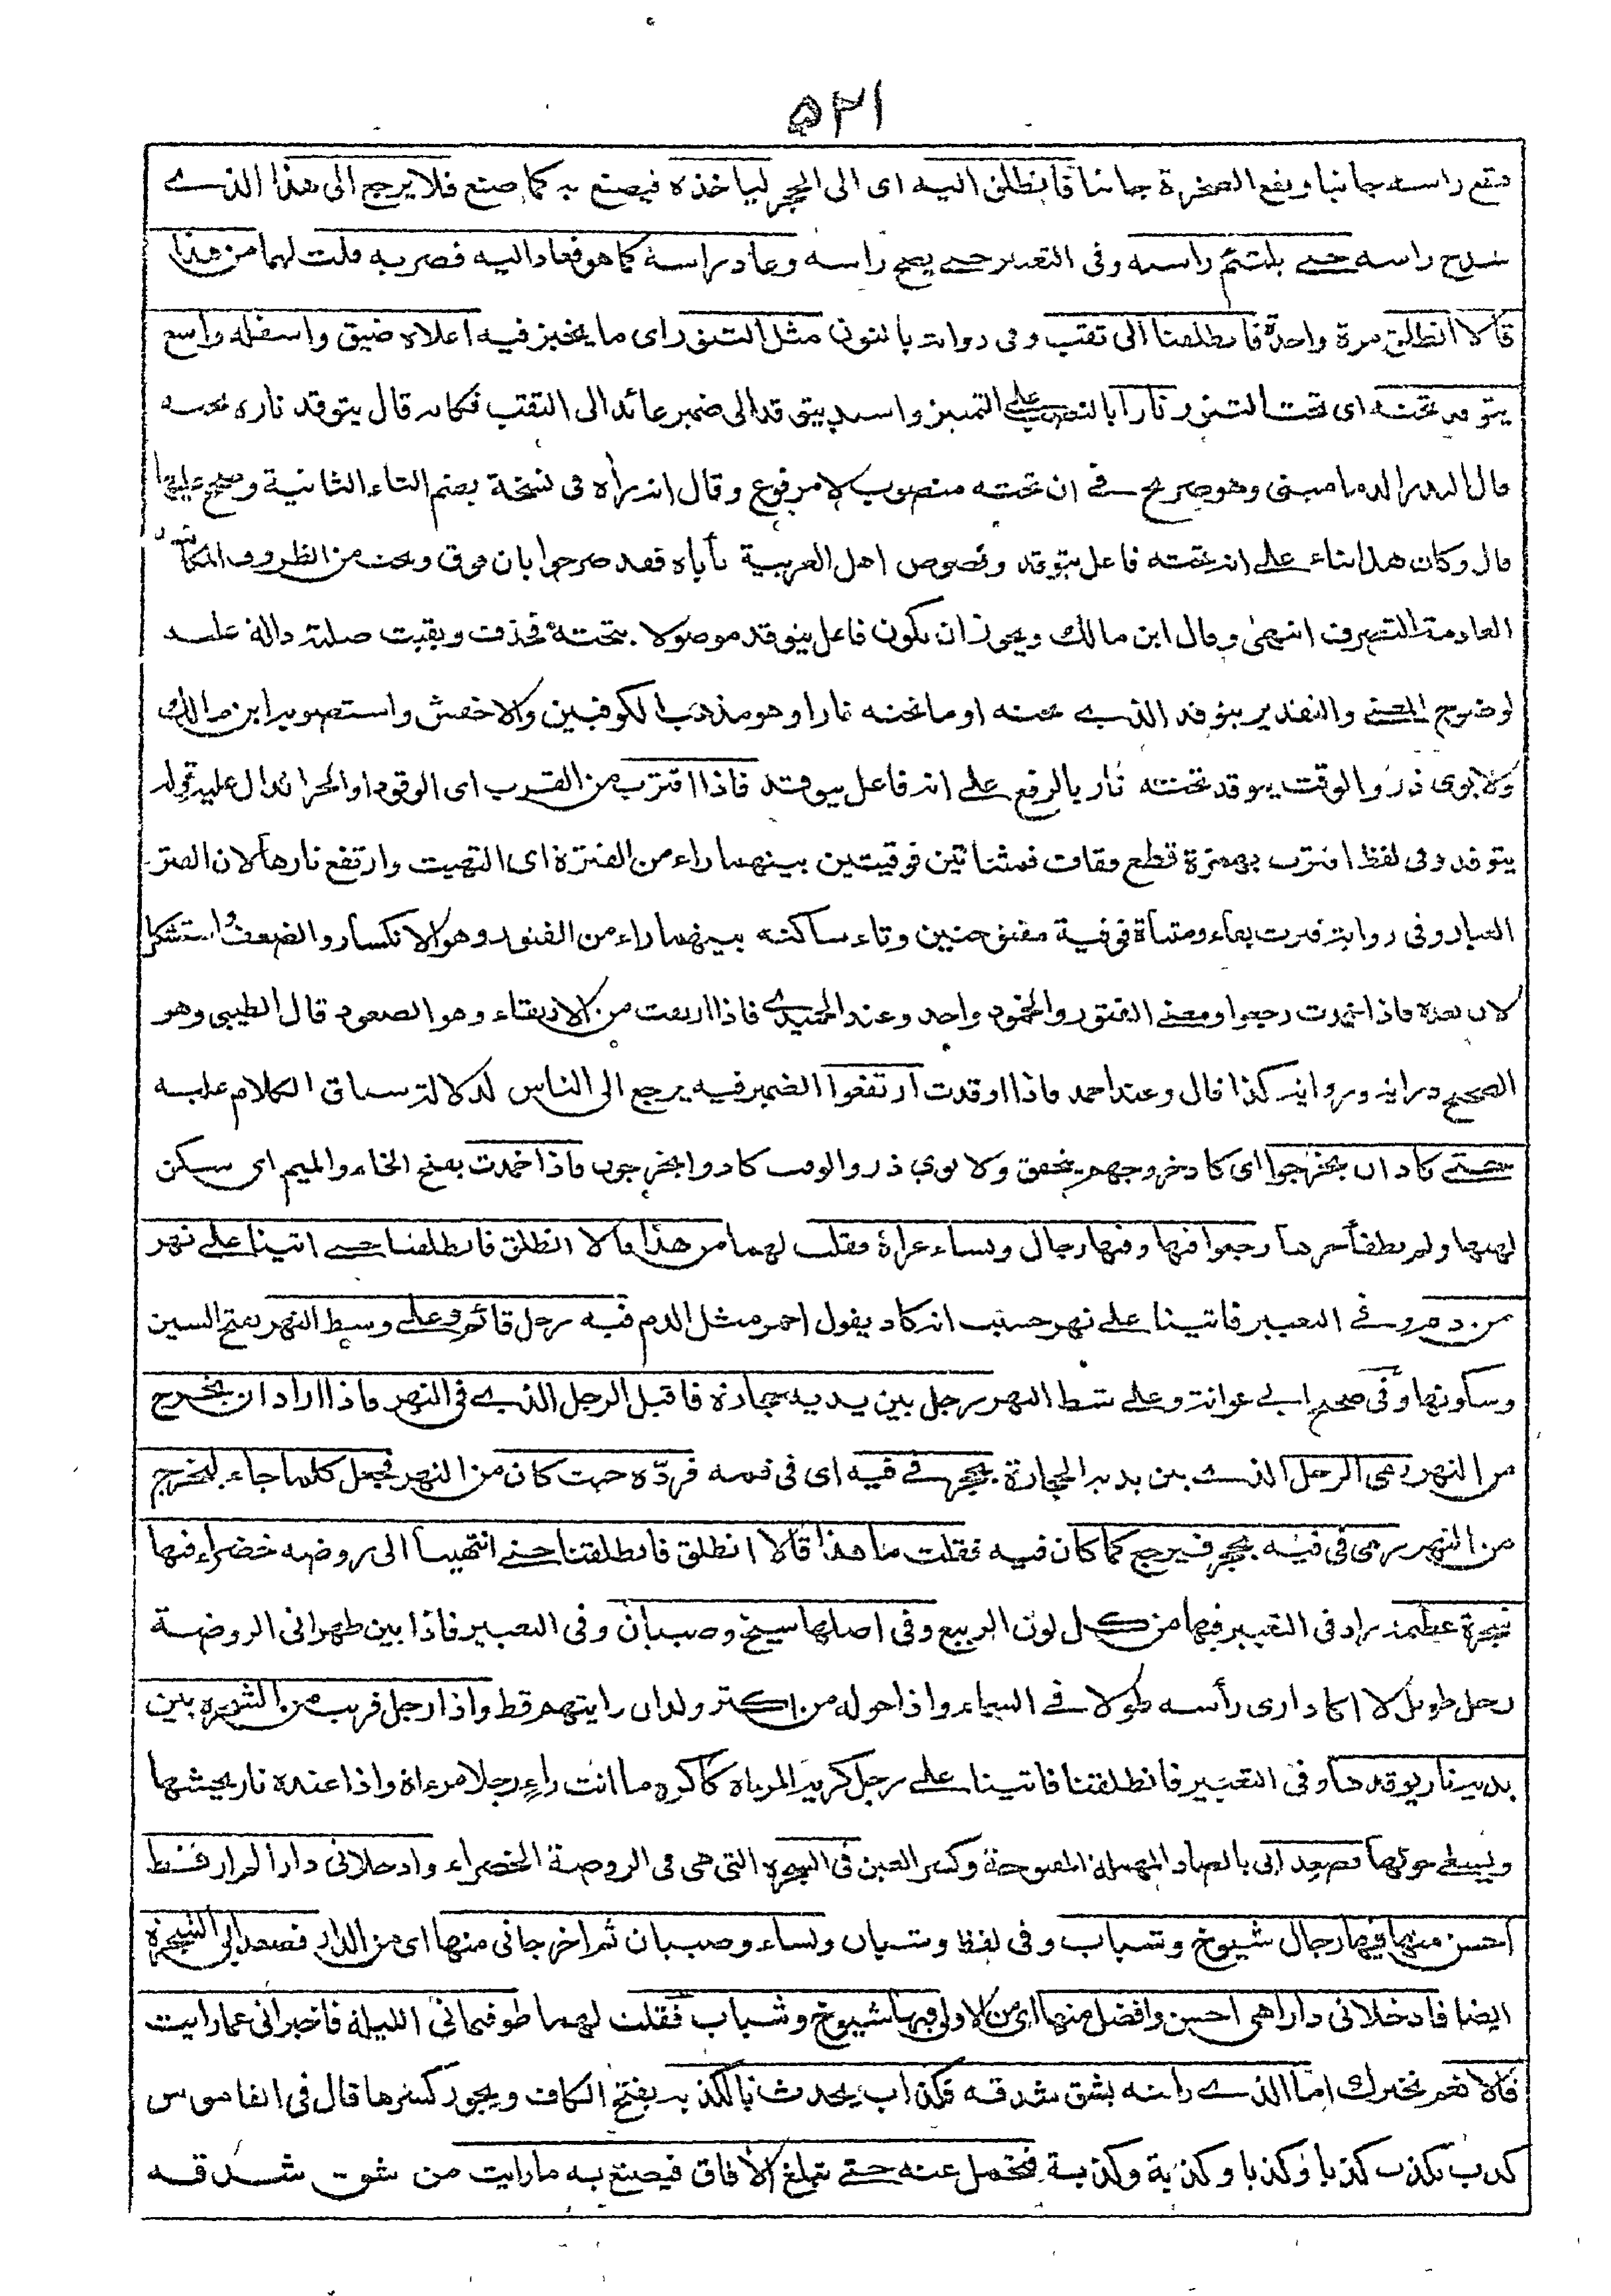 ٥٢١
فيقع راسه جانبا ويقع الصخرة جانبا فانطلق اليه اى الى الحجر لياخذه فيصنع به كما صنع فلا يرجع الى هذا الذى
شدخ راسه حتى يلتئم راسه وفى التعبير حتى يصح راسه وعاد راسه كما هو فعاد اليه فضربه قلت لهما من هذا
قالا انطلق مرة واحدة فانطلقنا الى ثقب وفى رواية بالنون مثل التنور اى ما يخبز فيه اعلاه ضيق واسفله واسع
يتوقد تحته اى تحت التنور نارا بالنصب على التميز واسند يتوقد الى ضمير عائد الى الثقب فكانه قال يتوقد ناره تحته
قال البدر الدمامينى وهو صريح فى ان تحته منصوب لا مرفوع وقال انه راه فى نسخة بضم التاء الثانية وصحح عليها
قال وكان هذا بناء على ان تحته فاعل يتوقد ونصوص اهل العربية تأباه فقد صرحوا بان فوق وتحت من الظروف المكانية
العادمة التصرف انتهى وقال ابن مالك ويجوز ان يكون فاعل يتوقد موصولا بتحته فحذف وبقيت صلته دالة عليه
لوضوح المعنى والتقدير يتوقد الذى تحته او ما تحته نارا وهو مذهب الكوفيين والاخفش واستصوبه ابن مالك
ولابوى ذر والوقت يتوقد تحته نار بالرفع على انه فاعل يتوقد فاذا اقترب من القرب اى الوقود او الحر الدال عليه قوله
يتوقد وفى لفظ اقترب بهمزة قطع فقاف فمثناتين فوقيتين بينهما راء من القترة اى التهبت وارتفع نارها لان القتر
الغبار وفى رواية فترت بفاء ومثناة فوقية مفتوحتين وتاء ساكنه بينهما راء من الفتور وهو الانكسار والضعف واستشكل
لان بعده فاذا خمدت رجعوا ومعنى الفتور والخمود واحد وعند الحميدى فاذا ارتقت من الارتقاء وهو الصعود قال الطيبى وهو
الصحيح دراية ورواية كذا قال وعند احمد فاذا اوقدت ارتفعوا الضمير فيه يرجع الى الناس لدلالة سياق الكلام عليه
حتى كاد ان يخرجوا اى كاد خروجهم يتحقق ولابوى ذر والوقت كادوا يخرجون فاذا خمدت بفتح الخاء والميم اى سكن
لهبها ولم يطفأ حرها رجعوا فيها وفيها رجال ونساء عراة فقلت لهما من هذا قالا انطلق فانطلقنا حتى اتينا على نهر
من دم وفى التعبير فاتينا على نهر حسبت انه كاد يقول احمر مثل الدم فيه رجل قائم وعلى وسط النهر بفتح السين
وسكونها وفى صحيح ابى عوانة وعلى شط النهر رجل بين يديه حجارة فاقبل الرجل الذى فى النهر فاذا اراد ان يخرج
من النهر رمى الرجل الذى بين يديه الحجارة بحجر فى فيه اى فى فمه فردّه حيث كان من النهر فجعل كلما جاء ليخرج
من النهر رمى فى فيه بحجر فيرجع كما كان فيه فقلت ما هذا قالا انطلق فانطلقنا حتى انتهينا الى روضه خضراء فيها
شجرة عظيمة زاد فى التعبير فيها من كل لون الربيع وفى اصلها شيخ وصبيان وفى التعبير فاذا بين ظهرانى الروضة
رجل طويل لا اكاد ارى رأسه طولا فى السماء واذا حوله من اكثر ولدان رايتهم قط واذا رجل قريب من الشجره بين
يديه نار يوقدها وفى التعبير فانطلقنا فاتينا على رجل كريه المرءاة كاكره ما انت راءٍ رجلا مرءاة واذا عنده نار يحشها
ويسعى حولها فصعدا بى بالصاد المهملة المفتوحة وكسر العين فى الشجرة التى هى فى الروضة الخضراء وادخلانى دارا لم ار قط
احسن منها فيها رجال شيوخ وشباب وفى لفظ وشبان ونساء وصبيان ثم اخرجانى منها اى من الدار فصعدا بى الشجرة
ايضا فادخلانى دارا هى احسن وافضل منها اى من الاولى فيها شيوخ وشباب فقلت لهما طوفتمانى الليلة فاخبرانى عما رايت
قالا نعم نخبرك اما الذى رايته يشق شدقه فكذاب يحدث بالكذبه بفتح الكاف ويجوز كسرها قال فى القاموس
كذب يكذب كذبا وكذبا وكذبة وكذبة فتحمل عنه حتى تبلغ الآفاق فيصنع به ما رايت من شق شدقه